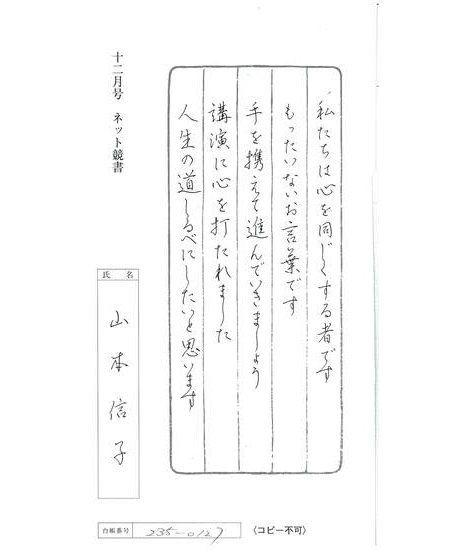 私たちは心を同じくする者です
もったいないお言葉です
手を携えて進んでいきましょう
講演に心を打たれました
人生の道しるべにしたいと思います
十二月号 ネット競書
氏名
山本信子
台帳番号 235-0127
〈コピー不可〉